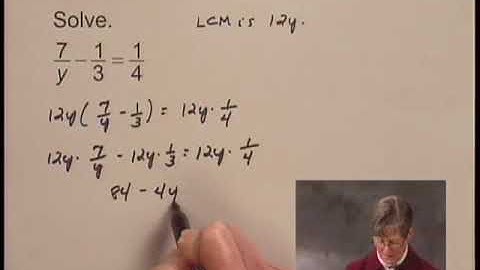 Solve. LCM is 12y.
7/y - 1/3 = 1/4
12y( 7/y - 1/3 ) = 12y · 1/4
12y · 7/y - 12y · 1/3 = 12y · 1/4
84 - 4y